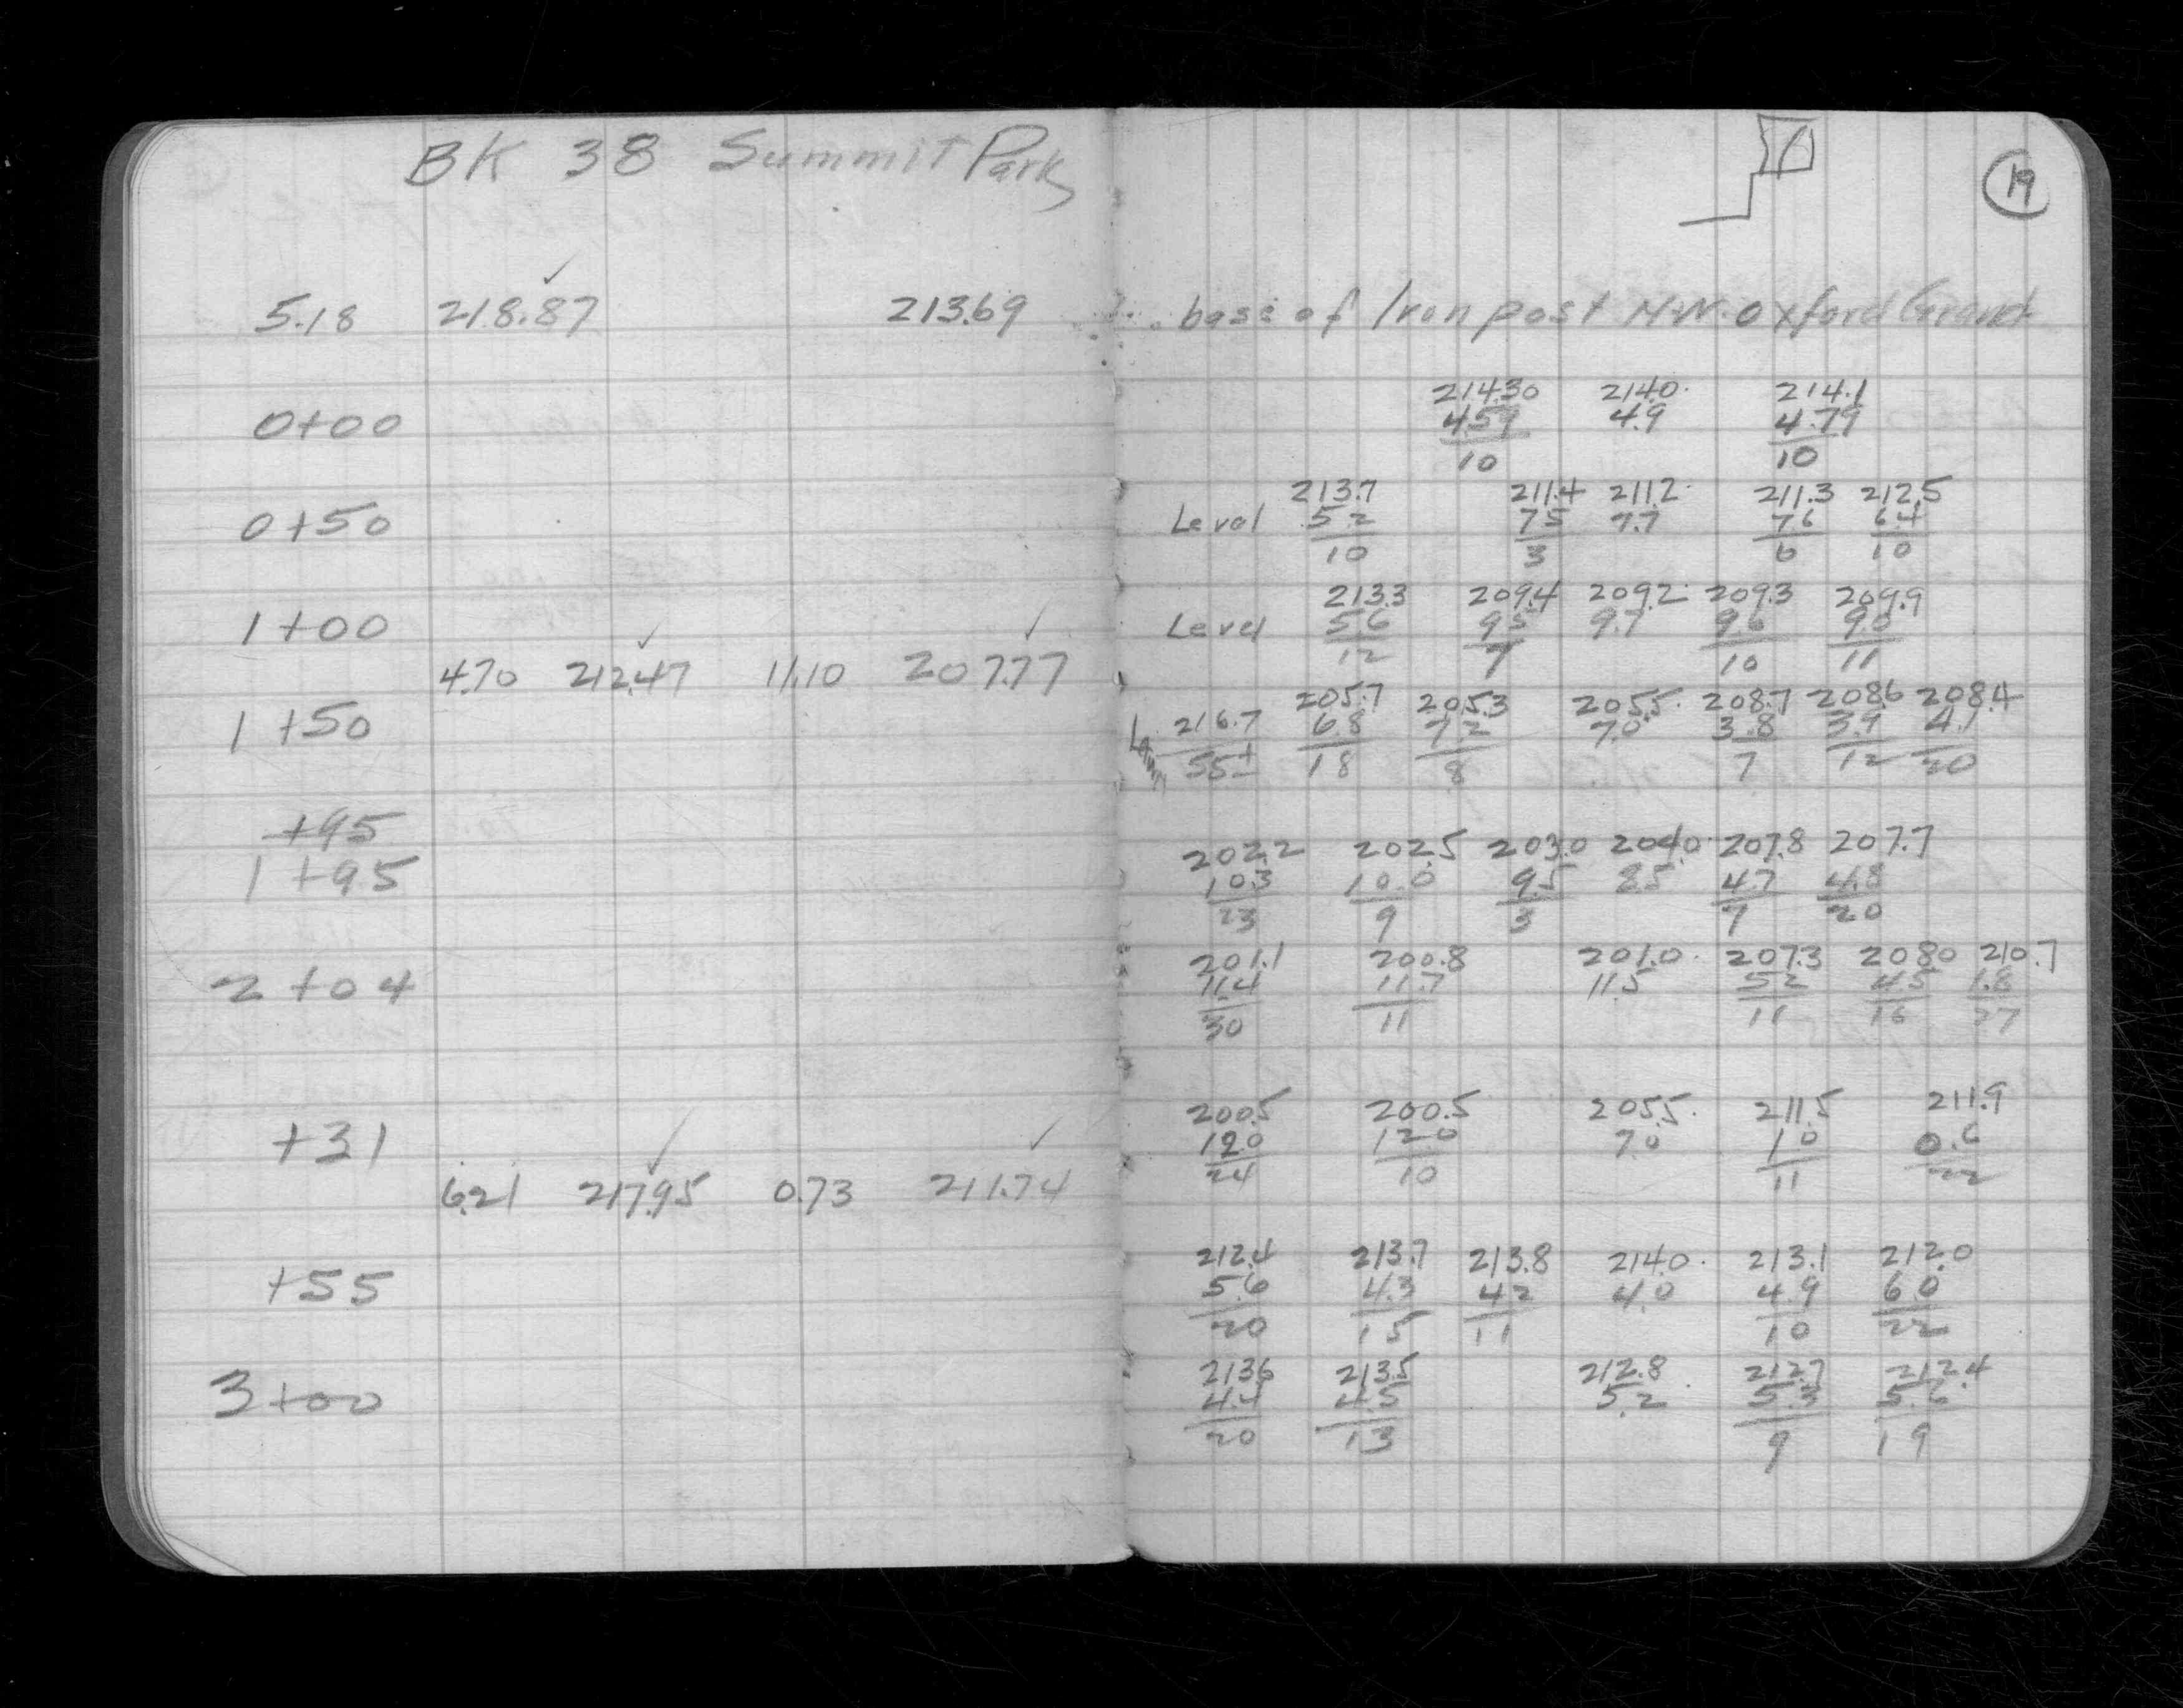 BK 38 Summit Park
19
5.18 218.87 213.69 base of Iron post N.W. Oxford Grand
214.30 214.0 214.1
0+00 4.59 4.9 4.79
10 10
213.7 211.4 211.2 211.3 212.5
0+50 Level 5.2 7.5 7.7 7.6 6.4
10 3 6 10
213.3 209.4 209.2 209.3 209.9
1+00 Level 5.6 9.5 9.7 9.6 9.0
12 7 10 11
4.70 212.47 11.10 207.77
205.7 205.3 205.5 208.7 208.6 208.4
1+50 216.7 6.8 7.2 7.0 3.8 3.9 4.1
55± 18 8 7 12 20
+95
202.2 202.5 203.0 204.0 207.8 207.7
1+95 10.3 10.0 9.5 8.5 4.7 4.8
23 9 3 7 20
201.1 200.8 201.0 207.3 208.0 210.7
2+04 11.4 11.7 11.5 5.2 4.5 1.8
30 11 11 16 27
200.5 200.5 205.5 211.5 211.9
+31 12.0 12.0 7.0 1.0 0.6
24 10 11 22
6.21 217.95 0.73 211.74
212.4 213.7 213.8 214.0 213.1 212.0
+55 5.6 4.3 4.2 4.0 4.9 6.0
20 15 11 10 22
213.6 213.5 212.8 212.7 212.4
3+00 4.4 4.5 5.2 5.3 5.6
20 13 9 19